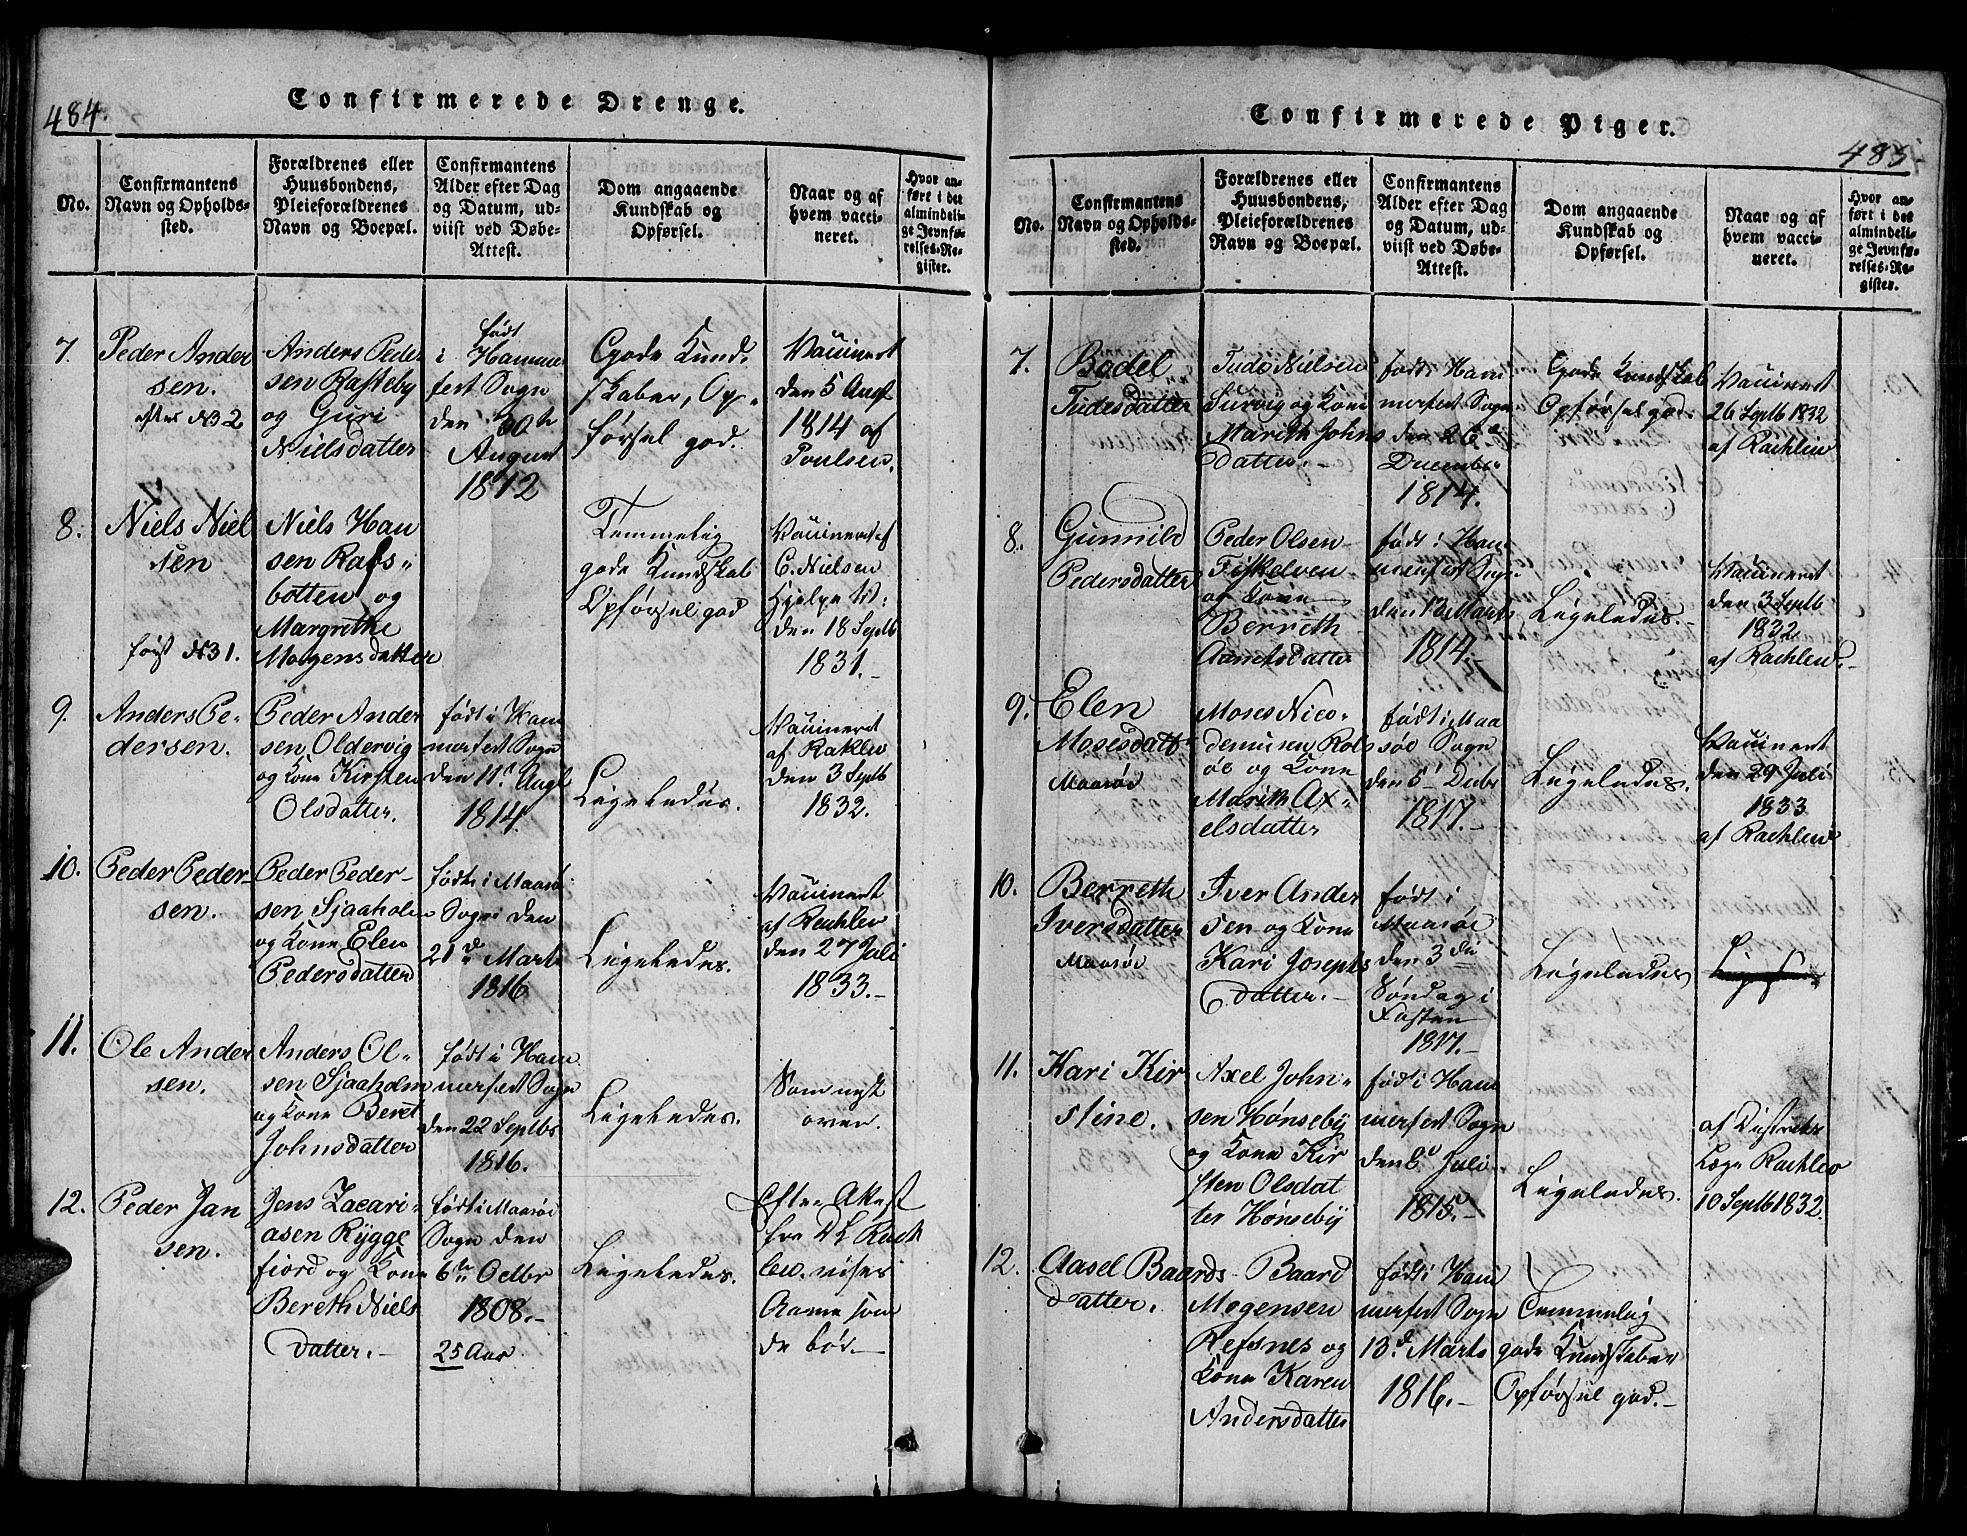 484.
Confirmerede Drenge.
No.
Confirmantens
Navn og Opholds-
sted.
Forældrenes eller
Huusbondens,
Pleieforældrenes
Navn og Boepæl.
Confirmantens
Alder efter Dag
og Datum, ud-
viist ved Døbe-
Attest.
Dom angaaende
Kundskab og
Opførsel.
Naar og af
hvem vacci-
neret.
Hvor an-
ført i det
almindeli-
ge Jevnfø-
relses-Re-
gister.
7.
Peder Ander
sen.
efter N 32
Anders Peder
sen Rasteby
og Guri
Nielsdatter
født
i Hammer
fest Sogn
den 30th
August
1812
Gode Kund-
skaber, Op-
førsel god.
Vaccineret
den 5 Augt
1814 af
Poulsen.
8.
Niels Niel
sen
først N31.
Niels Han
sen Rafs-
botten og
Margrethe
Mogensdatter
Temmelig
gode Kundskab
Opførsel god
Vaccineret af
C. Nielsen
Hjelpe V:
den 18 Septb
1831.-
9.
Anders Pe-
dersen.
Peder Ander
sen Oldervig
og Kone Kirsten
Olsdatter.
født i Ham
merfest Sogn
den 11t Augt
1814.
Ligeledes.
Vaccineret
af Raklev
den 3 Septb
1832.
10.
Peder Peder-
sen.
Peder Peder-
sen Sjaaholm
og Kone Elen
Pedersdatter
født i Maasø
Sogn den
21de Marts
1816
Ligeledes.
Vaccineret
af Rachlev
den 27 Juli
1833.-
11.
Ole Ander
sen.
Anders Ol-
sen Sjaaholm
og Kone Beret
Johnsdatter
født i Ham
merfest Sogn
den 22 Septbr
1816.
Ligeledes.
Som nest
oven.
12.
Peder Jan
sen.
Jens Zacari-
asen Rygge
fiord og Kone
Bereth Niels
datter.-
født i Maasøe
Sogn den
6te Octbr
1808.-
25 Aar
Ligeledes.
Efter Atest
fra Dl Rach
lev. vises
Aarene som
de bør.-
Confirmerede Piger.
485
No.
Confirmantens
Navn og Opholds-
sted.
Forældrenes eller
Huusbondens,
Pleieforældrenes
Navn og Boepæl.
Confirmantens
Alder efter Dag
og Datum, ud-
viist ved Døbe-
Attest.
Dom angaaende
Kundskab og
Opførsel.
Naar og af
hvem vacci-
neret.
Hvor an-
ført i det
almindeli-
ge Jevnfø-
relses-Re-
gister.
7.
Bodel
Tudesdatter
Tude Nielsen
Survig og Kone
Marith Johns
datter.-
født i Ham
merfest Sogn
den 26de
December
1814.
Gode Kundskab
Opførsel god.
Vaccineret
26 Septb 1832
af Rachlew
8.
Gunnild
Pedersdatter
Peder Olsen
Fiskelven
og Kone
Berreth
Aamtsdatter
født i Ham
merfest Sogn
den 13 Marts
1814.-
Ligeledes.-
Vaccineret
den 3 Septb
1832
af Rachlew.-
9.
Elen
Mosesdatt
Maasøe
Moses Nico-
demusen Rols
øe og Kone
Marith Ax-
elsdatter
født i Maa
søe Sogn
den 5t Decbr
1817.-
Ligeledes.
Vaccineret
den 29 Juli
1833
af Rachlew
10.
Berreth
Iversdatter
Maasøe
Iver Ander
sen og Kone
Kari Josephs
datter.-
født i
Maasøe
den 3die
Søndag i
Fasten
1817.-
Ligeledes
11.
Kari Kir
stine.
Axel John-
sen Hønseby
og Kone Kir
sten Olsdat
ter Hønseby
født i Ham
merfest Sogn
den 6t Juli
1815.-
Ligeledes.
af Districts
Læge Rachlew
10 Septb 1832.
12.
Aasel Baards
datter.
Baard
Mogensen
Refsnes og
Kone Karen
Andersdatter
født i Ham
merfest Sogn
13d. Marts
1816.-
Temmelig
gode Kundskaber
Opførsel god.-